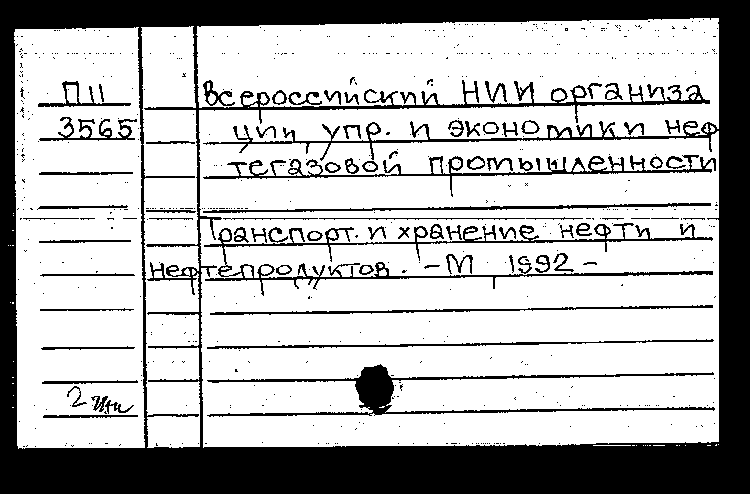 П11 Всероссийский НИИ организа
3565 ции, упр. и экономики неф
тегазовой промышленности
Транспорт. и хранение нефти и
нефтепродуктов. - М, 1992 -
2